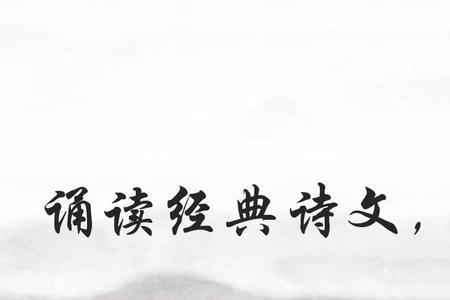 诵读经典诗文，